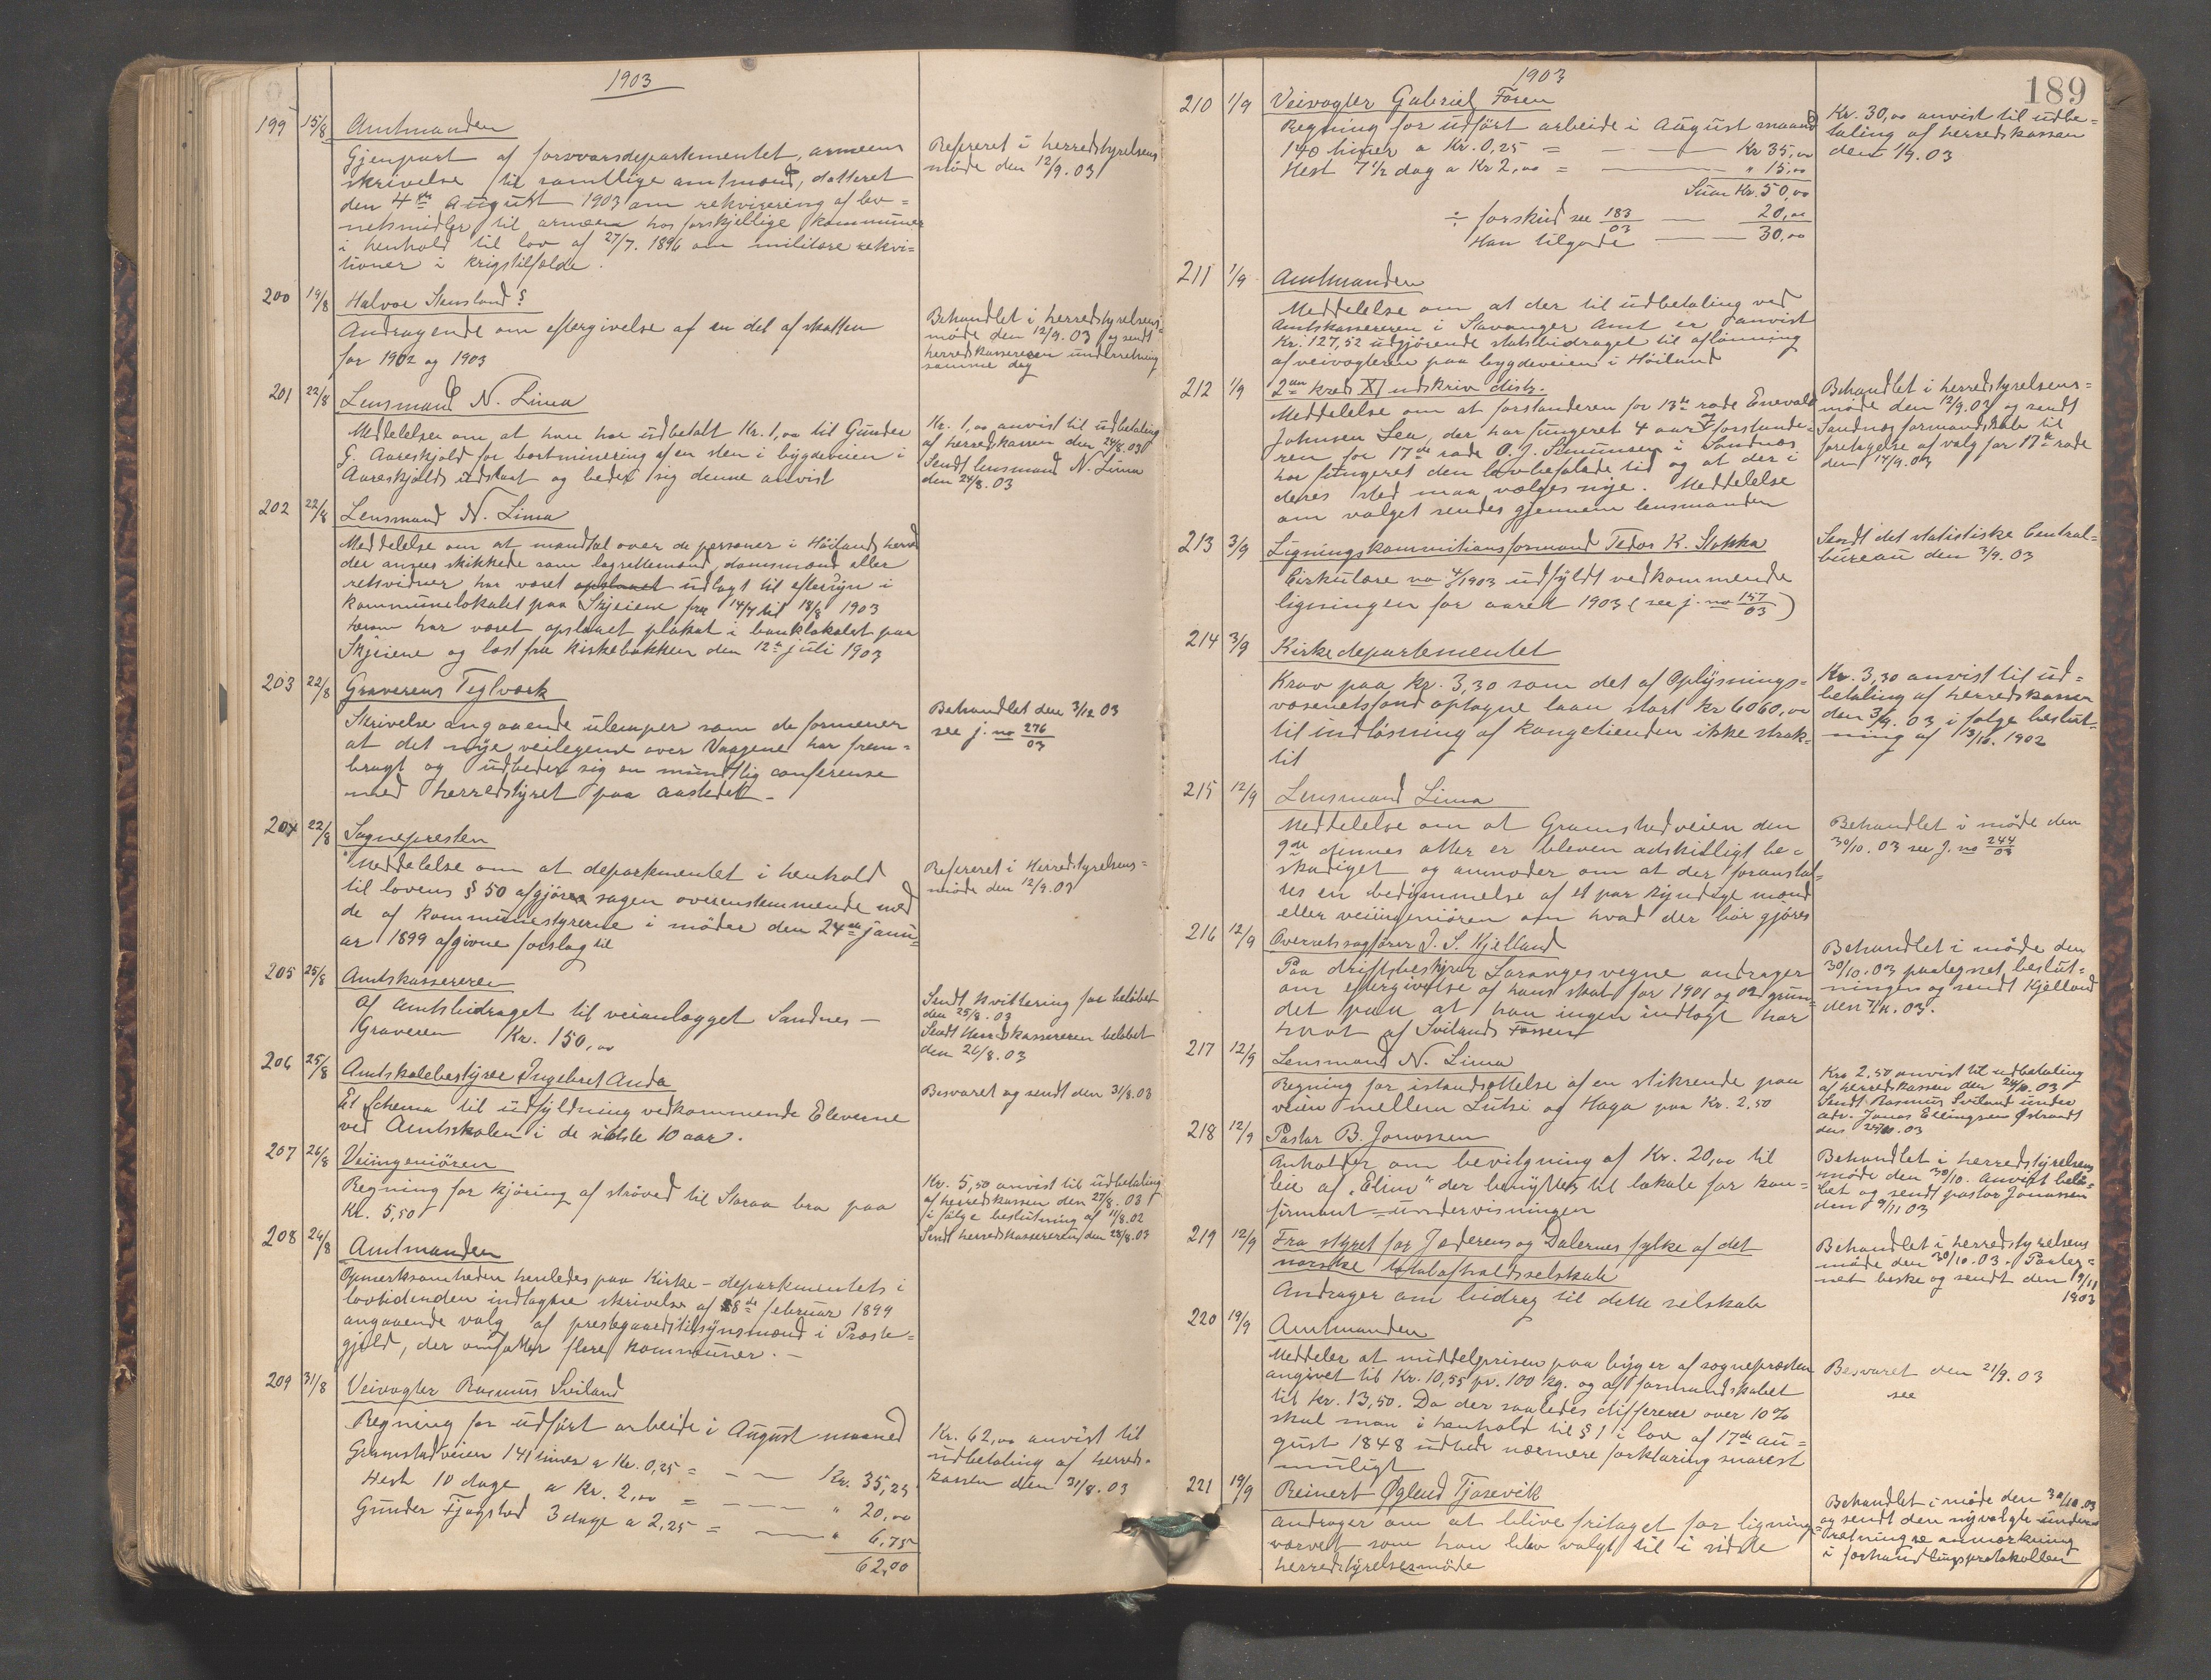 1903
199 15/8 Amtmanden
Gjenpart af forsvarsdepartementet, armeens
skrivelse til samtlige amtmænd, datteret
den 4de August 1903 om rekvirering af lev=
netsmidler til armeen hos forskjellige kommuner
i henhold til lov af 27/7. 1896 om militære rekvi=
tioner i krigstilfælde.
Refereret i herredstyrelsens
møde den 12/9. 03
200 19/8 Halvor Stensland §
Andragende om eftergivelse af en del af skatten
for 1902 og 1903
Behandlet i herredstyrelsens=
møde den 12/9. 03 og sendt
herredskassereren underretning
samme dag
201 22/8 Lensmand N. Lima
Meddelelse om at han har udbetalt Kr. 1,00 til Gunder
G. Aareskjold for bortminering af en sten i bygdeveien i
Aareskjolds udskart og beder sig denne anvist
Kr. 1,00 anvist til udbetaling
af herredskassen den 24/8. 03
Sendt lensmand N. Lima
den 24/8. 03
202 22/8 Lensmand N. Lima
Meddelelse om at mandtal over de personer i Høilands herred
der ansees skikkede som lagrettemænd, domsmænd eller
retsvidner har været opslaaet udlagt til eftersyn i
kommunelokalet paa Skjeiene fra 14/7 til 18/8 1903
herom har været opslaaet plakat i banklokalet paa
Skjeiene og læst fra Kirkebakken den 12te juli 1903
203 22/8 Graverens Teglværk
Skrivelse angaaende ulemper som de formener
at det nye veilegeme over Vaagene har frem=
bragt og udbeder sig en mundtlig conferense
med herredstyret paa aastedet –
Behandlet den 3/12 03
see j. no 276/03
204 22/8 Sognepresten
Meddelelse om at departementet i henhold
til lovens § 50 afgjøres sagen overenstemmende med
de af kommunestyrerne i møder den 24de janu=
ar 1899 afgivne forslag til
Refereret i Herredstyrelsens=
møde den 12/9. 03
205 25/8 Amtskassereren
af amtsbidraget til veianlægget Sandnes –
Graveren Kr. 150,00
Sendt kvittering for beløbet
den 25/8. 03
Sendt Herredskassereren beløbet
den 26/8. 03
206 25/8 Amtskolebestyrer Ingebret Anda
Et Schema til udfyldning vedkommende Eleverne
ved Amtsskolen i de sidste 10 aar.
Besvaret og sendt den 31/8. 03
207 26/8 Veiingeniøren
Regning for kjøring af strøved til Storaa bro paa
Kr. 5,50
Kr. 5,50 anvist til udbetaling
af herredskassen den 27/8. 03
i følge beslutning af 11/8. 02
Sendt herredskassereren den 28/8. 03
208 26/8 Amtmanden
Opmerksomheden henledes paa Kirke – departementets i
lovtidenden indtagne skrivelse af 8de februar 1899
angaaende valg af prestegaardstilsynsmænd i Præste=
gjeld, der omfatter flere kommuner. –
209 31/8 Veivogter Rasmus Sviland
Regning for udført arbeide i August maaned
Gramstadveien 141 timer a Kr. 0,25 = – — Kr. 35,25
Hest 10 dage a Kr. 2,00 = — " 20,00
Gunder Fjogstad 3 dage a 2,25 = — " 6,75
62,00
Kr. 62,00 anvist til
udbetaling af herreds-
kassen den 31/8. 03
1903
189
210 1/9 Veivogter Gabriel Fosen
Regning for udført arbeide i August maaned
140 timer a Kr. 0,25 = — Kr 35,00
Hest 7 1/2 dag a Kr 2,00 = — " 15,00
Sum Kr. 50,00
÷ forskud see 183/03 — 20,00
Han tilgode — 30,00
Kr. 30,00 anvist til udbe=
taling af herredskassen
den 1/9. 03
211 1/9 Amtmanden
Meddelelse om at der til udbetaling ved
Amtskassereren i Stavanger Amt er anvist
Kr. 127,52 udgjørende statsbidraget til aflønning
af veivogteren paa bygdeveien i Høiland
212 1/9 2den kreds XI udskriv distr.
Meddelelse om at forstanderen for 13de rode Enevald
Johnsen Lea, der har fungeret 4 aar og forstande=
ren for 17de rode O. J. Simunsen i Sandnes
har fungeret den lovbefalede tid og at der i
deres sted maa vælges nye. Meddelelse
om valget sendes gjennem lensmanden
Behandlet i herredstyrelsens=
møde den 12/9. 03 og sendt
Sandnæs formandskab til
foretagelse af valg for 17de rode
den 14/9. 03
213 3/9 Ligningskommitionsformand Tedor K. Stokka
Cirkulære no 4/1903 udfyldt vedkommende
ligningen for aaret 1903 (see j. no 157/03)
Sendt det statistiske Central=
bureau den 3/9. 03
214 3/9 Kirkedepartementet
Krav paa kr. 3,30 som det af Oplysnings=
væsenetsfond optagne laan stort kr 6060,00
til indløsning af kongetienden ikke strak=
til
Kr. 3,30 anvist til ud=
betaling af herredskassen
den 3/9. 03 i følge beslut=
ning af 13/10. 1902
215 12/9 Lensmand Lima
Meddelelse om at Gramstadveien den
9de dennes atter er bleven adskilligt be=
skadiget og anmoder om at der foranstal=
tes en bedømmelse af et par kyndige mænd
eller veiingeniøren om hvad der bør gjøres
Behandlet i møde den
30/10. 03 see J. no 244/03
216 12/9 Overretssagfører J. S. Kjelland
Paa driftsbestyrer Loranges vegne andrager
om eftergivelse af hans skat for 1901 og 02 grun=
det paa at han ingen indtægt har
havt af Svilands Fossen
Behandlet i møde den
30/10. 03 paategnet beslut=
ningen og sendt Kjelland
den 7/11. 03.
217 12/9 Lensmand N. Lima
Regning for istandsættelse af en stikrende paa
veien mellem Lutsi og Haga paa Kr. 2,50
Kro 2,50 anvist til udbetaling
af herredskassen den 24/10. 03
Sendt Rasmus Sviland under
adr. Jonas Ellingsen Østraadt
den 24/10. 03
218 12/9 Pastor B. Jonassen
Anholder om bevilgning af Kr. 20,00 til
leie af „Elim" der benyttes til lokale for kon=
firmant=undervisningen
Behandlet i herredstyrelsens
møde den 30/10. anvist belø=
bet og sendt pastor Jonassen
den 9/11 03
219 12/9 Fra styret for Jæderens og Dalernes fylke af det
norske totalafholdsselskab
Andrager om bidrag til dette selskab
Behandlet i herredstyrelsens
møde den 30/10. 03. Paateg=
net beske og sendt den 9/11
1903
220 19/9 Amtmanden
Meddeler at middelprisen paa byg er af sognepræsten
angivet til Kr. 10,55 pr. 100 kg. og af formandskabet
til kr. 13,50. Da der saaledes differerer over 10%
skal man i henhold til § 1 i lov af 17de au=
gust 1848 udbede nærmere forklaring snarest
muligt
Besvaret den 21/9. 03
see
221 19/9 Reinert Øglend Tjosevik
andrager om at blive fritaget for lignings=
værvet som han blev valgt til i sidste
herredstyrelsesmøde
Behandlet i møde den 30/10. 03
og sendt den nyvalgte under=
retning se anmærkning
i forhandlingsprotokollen